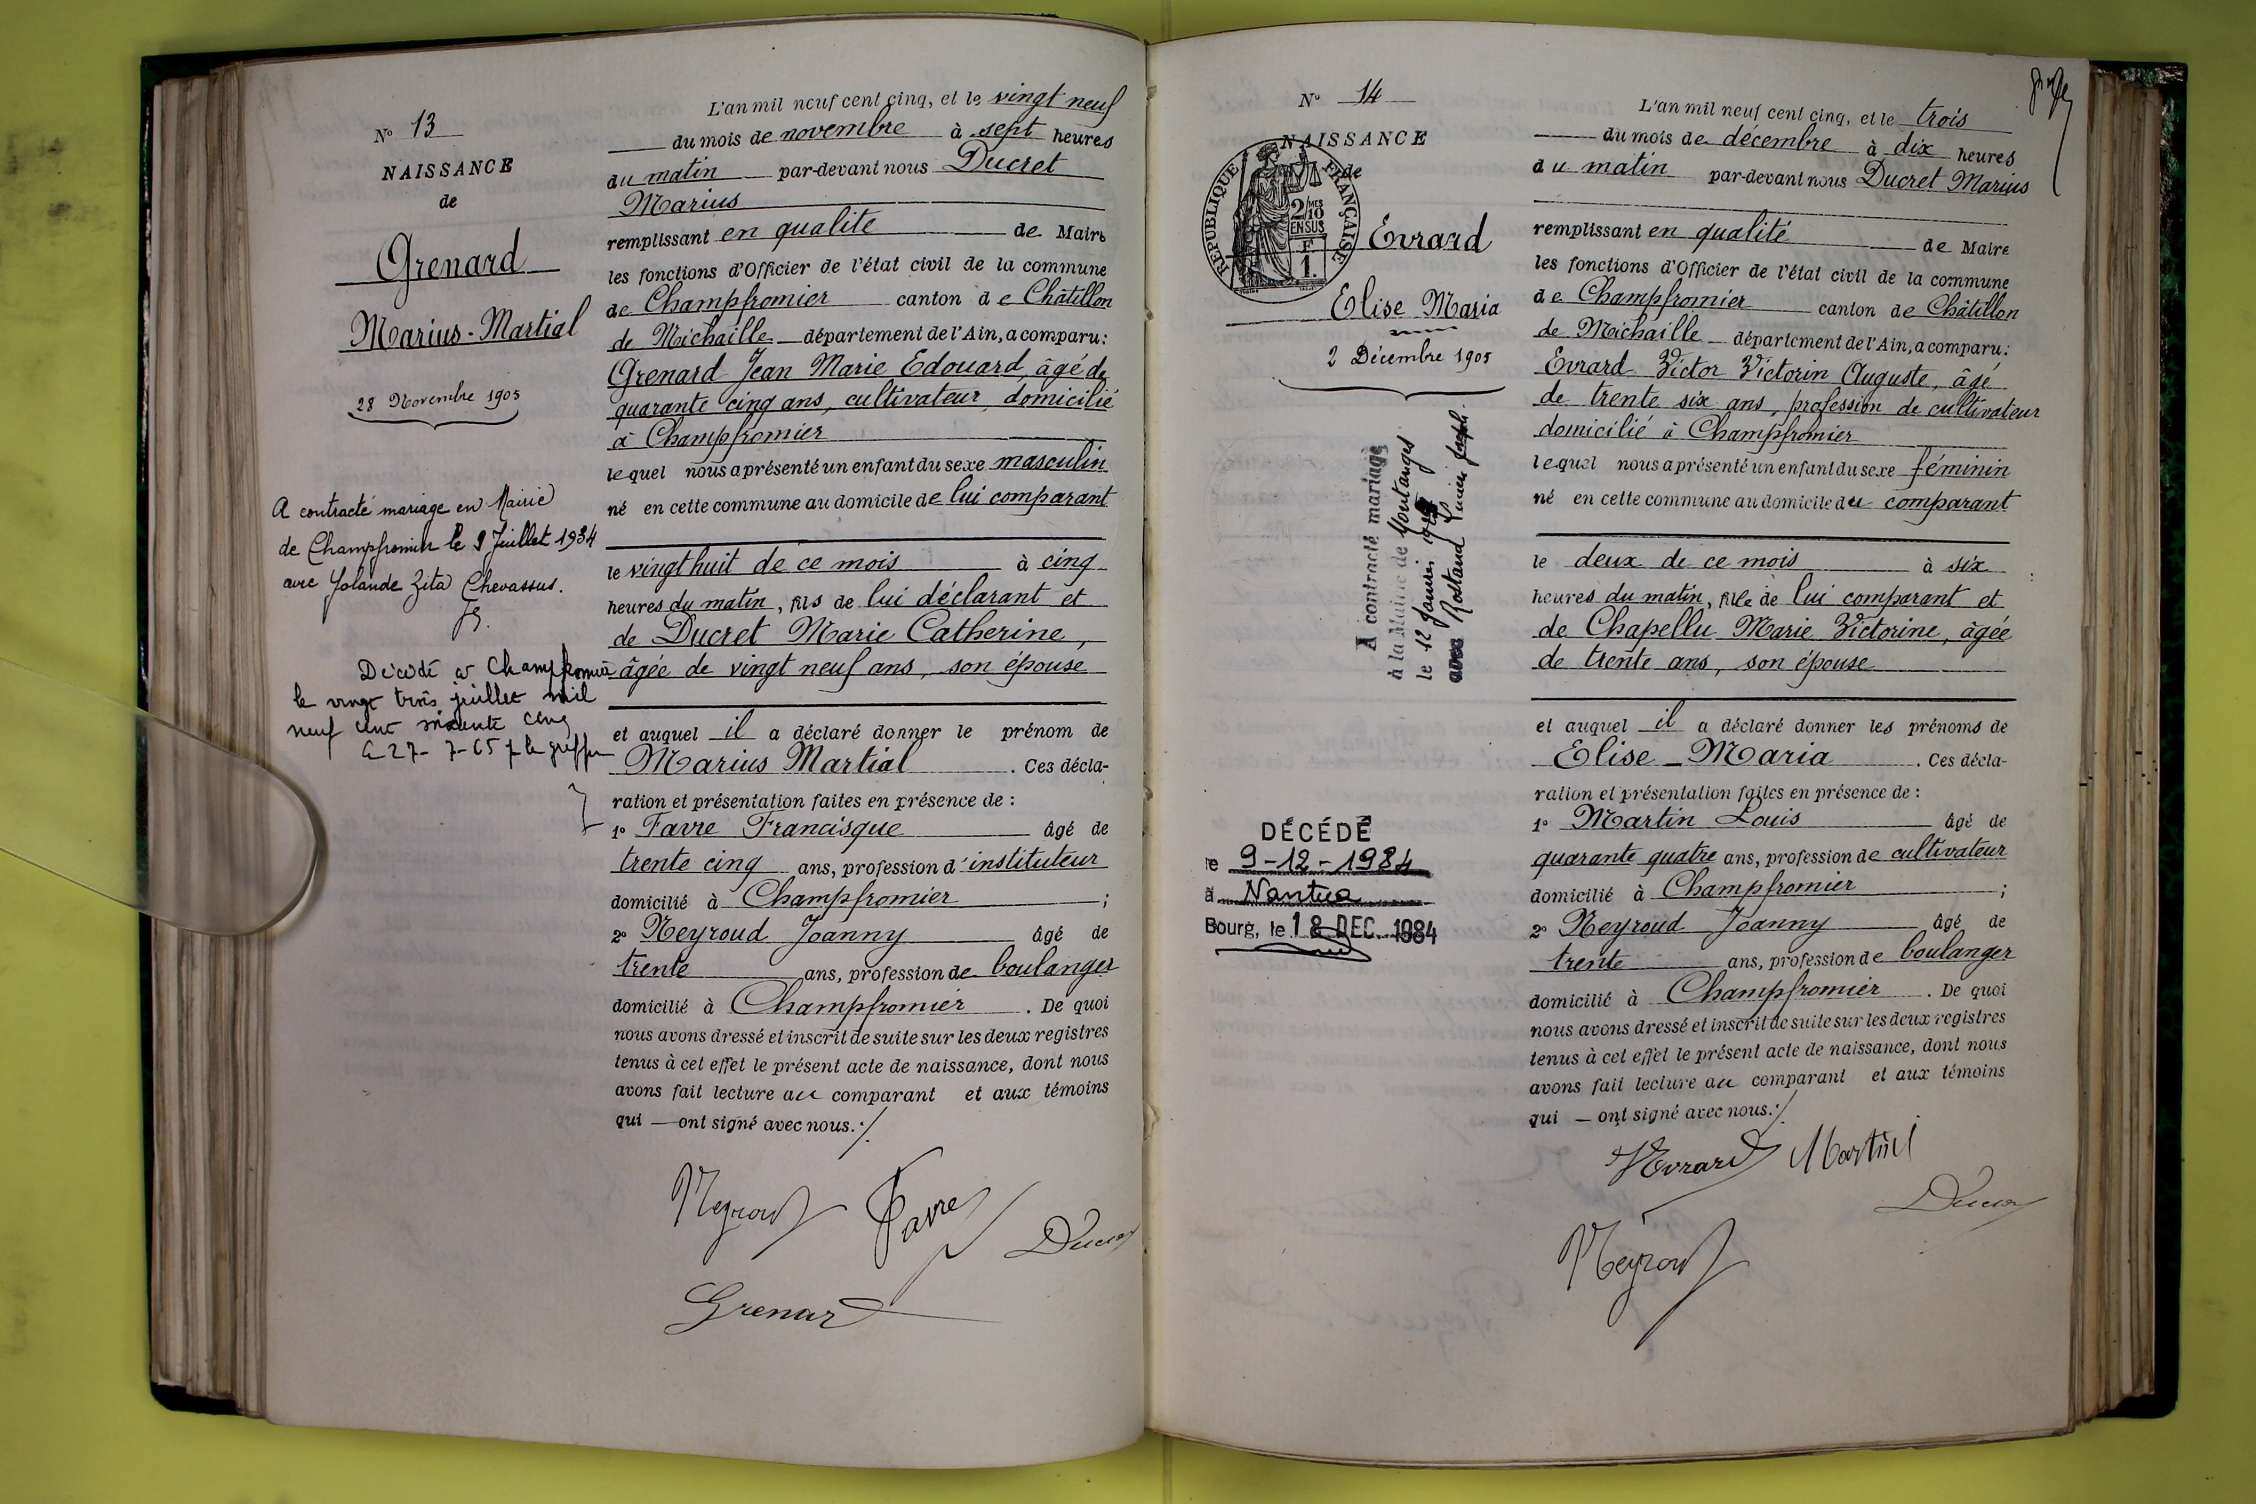 N° 13
NAISSANCE
de
Grenard
Marius-Martial
28 Novembre 1905
A contracté mariage en Mairie
de Champfromier le 9 Juillet 1934
avec Yolande Zita Chevassus.
Décédé à Champfromier
le vingt trois juillet mil
neuf cent soixante cinq
Le 27-7-65 le greffier
L'an mil neuf cent cinq, et le vingt neuf
du mois de novembre à sept heures
du matin par-devant nous Ducret
Marius
remplissant en qualité de Maire
les fonctions d'Officier de l'état civil de la commune
de Champfromier canton de Châtillon
de Michaille département de l'Ain, a comparu:
Grenard Jean Marie Edouard, âgé de
quarante cinq ans, cultivateur, domicilié
à Champfromier
lequel nous a présenté un enfant du sexe masculin
né en cette commune au domicile de lui comparant
le vingt huit de ce mois à cinq
heures du matin, fils de lui déclarant et
de Ducret Marie Catherine,
âgée de vingt neuf ans, son épouse
et auquel il a déclaré donner le prénom de
Marius Martial. Ces décla-
ration et présentation faites en présence de :
1° Favre Francisque âgé de
trente cinq ans, profession d'instituteur
domicilié à Champfromier ;
2° Neyroud Joanny âgé de
trente ans, profession de boulanger
domicilié à Champfromier. De quoi
nous avons dressé et inscrit de suite sur les deux registres
tenus à cet effet le présent acte de naissance, dont nous
avons fait lecture au comparant et aux témoins
qui — ont signé avec nous ./.
Neyroud Favre
Ducret
Grenard
N° 14
NAISSANCE
de
RÉPUBLIQUE FRANÇAISE
2/10 MES
EN SUS
F
1.
Evrard
Elise Maria
2 Décembre 1905
A contracté mariage
à la Mairie de Montanges
le 12 Janvier
avec Rostand Lucien Joseph.
DÉCÉDÉ
le 9-12-1984
à Nantua
Bourg, le 18 DEC. 1984
L'an mil neuf cent cinq, et le trois
du mois de décembre à dix heures
du matin par-devant nous Ducret Marius
remplissant en qualité de Maire
les fonctions d'Officier de l'état civil de la commune
de Champfromier canton de Châtillon
de Michaille département de l'Ain, a comparu:
Evrard Victor Victorin Auguste, âgé
de trente six ans, profession de cultivateur
domicilié à Champfromier
lequel nous a présenté un enfant du sexe féminin
né en cette commune au domicile du comparant
le deux de ce mois à six
heures du matin, fille de lui comparant et
de Chapellu Marie Victorine, âgée
de trente ans, son épouse
et auquel il a déclaré donner les prénoms de
Elise - Maria. Ces décla-
ration et présentation faites en présence de :
1° Martin Louis âgé de
quarante quatre ans, profession de cultivateur
domicilié à Champfromier ;
2° Neyroud Joanny âgé de
trente ans, profession de boulanger
domicilié à Champfromier. De quoi
nous avons dressé et inscrit de suite sur les deux registres
tenus à cet effet le présent acte de naissance, dont nous
avons fait lecture au comparant et aux témoins
qui — ont signé avec nous ./.
Evrard Martin
Ducret
Neyroud